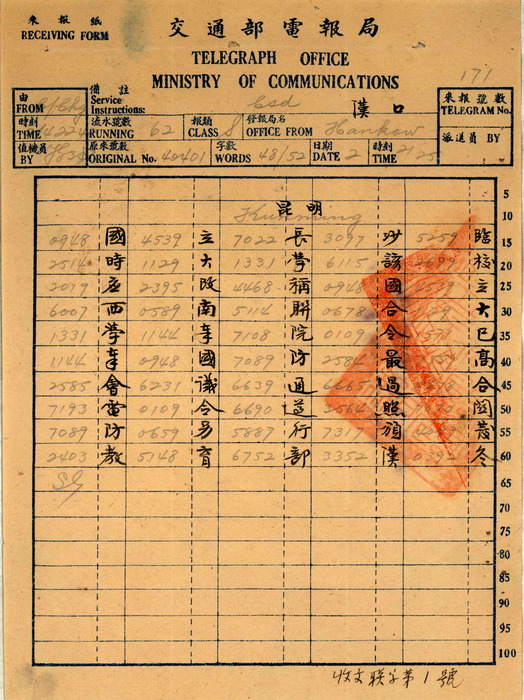 來報紙
RECEIVING FORM
交通部電報局
TELEGRAPH OFFICE
MINISTRY OF COMMUNICATIONS
171
由
FROM
備註
Service Instructions:
Csd
漢口
來報號數
TELEGRAM No.
時刻
TIME
流水號數
RUNNING 62
報類
CLASS S
發報局名
OFFICE FROM Hankow
派送員 BY
值機員
BY
原來號數
ORIGINAL No. 40401
字數
WORDS 48/52
日期
DATE 2
時刻
TIME
5
昆明
Kunming
10
0948 國 4539 立 7022 長 3097 沙 5259 臨
15
2514 時 1129 大 1331 學 6115 該 校
20
應 2395 改 4468 稱 0948 國 立
25
6007 西 0589 南 5114 聯 0678 合 大
30
1331 學 1144 奉 7108 院 0109 令 已
35
1144 奉 0948 國 7089 防 最 高
40
2585 會 6231 議 6639 通 6665 過 合
45
7193 電 0109 令 6690 遵 3564 照 關
50
7089 防 0659 另 5887 行 頒 發
55
2403 教 5148 育 6752 部 3352 漢 冬
60
65
70
75
80
85
90
95
100
收文聯字第1號